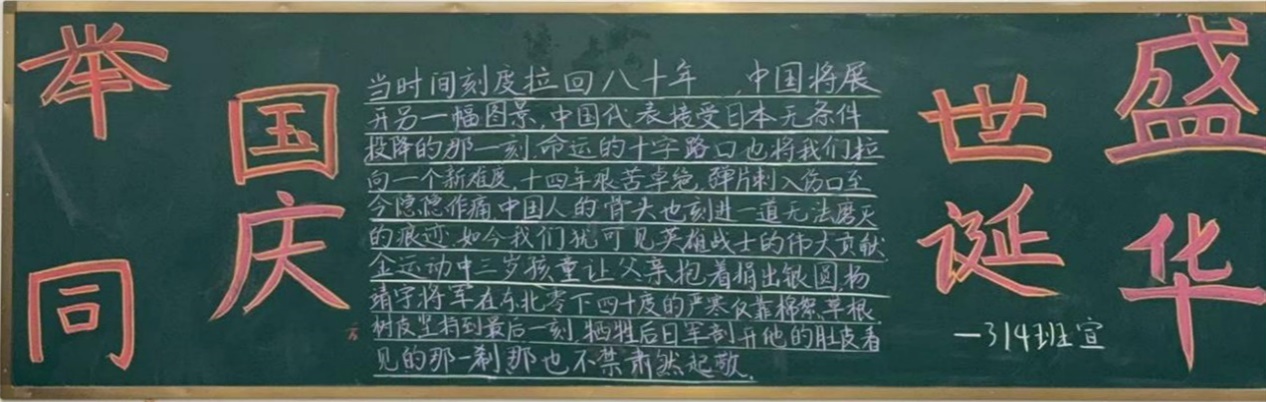 举同
国庆
当时间刻度拉回八十年,中国将展
开另一幅图景,中国代表接受日本无条件
投降的那一刻.命运的十字路口也将我们拉
向一个新难度,十四年艰苦卓绝,弹片刺入伤口至
今隐隐作痛中国人的骨头也刻进一道无法磨灭
的痕迹.如今我们犹可见英雄战士的伟大贡献
金运动中三岁孩童让父亲抱着捐出银圆杨
靖宇将军在东北零下四十度的严寒仅靠棉絮.草根
树皮坚持到最后一刻.牺牲后日军剖开他的肚皮看
见的那一刹那也不禁肃然起敬.
世诞
盛华
—314班宣